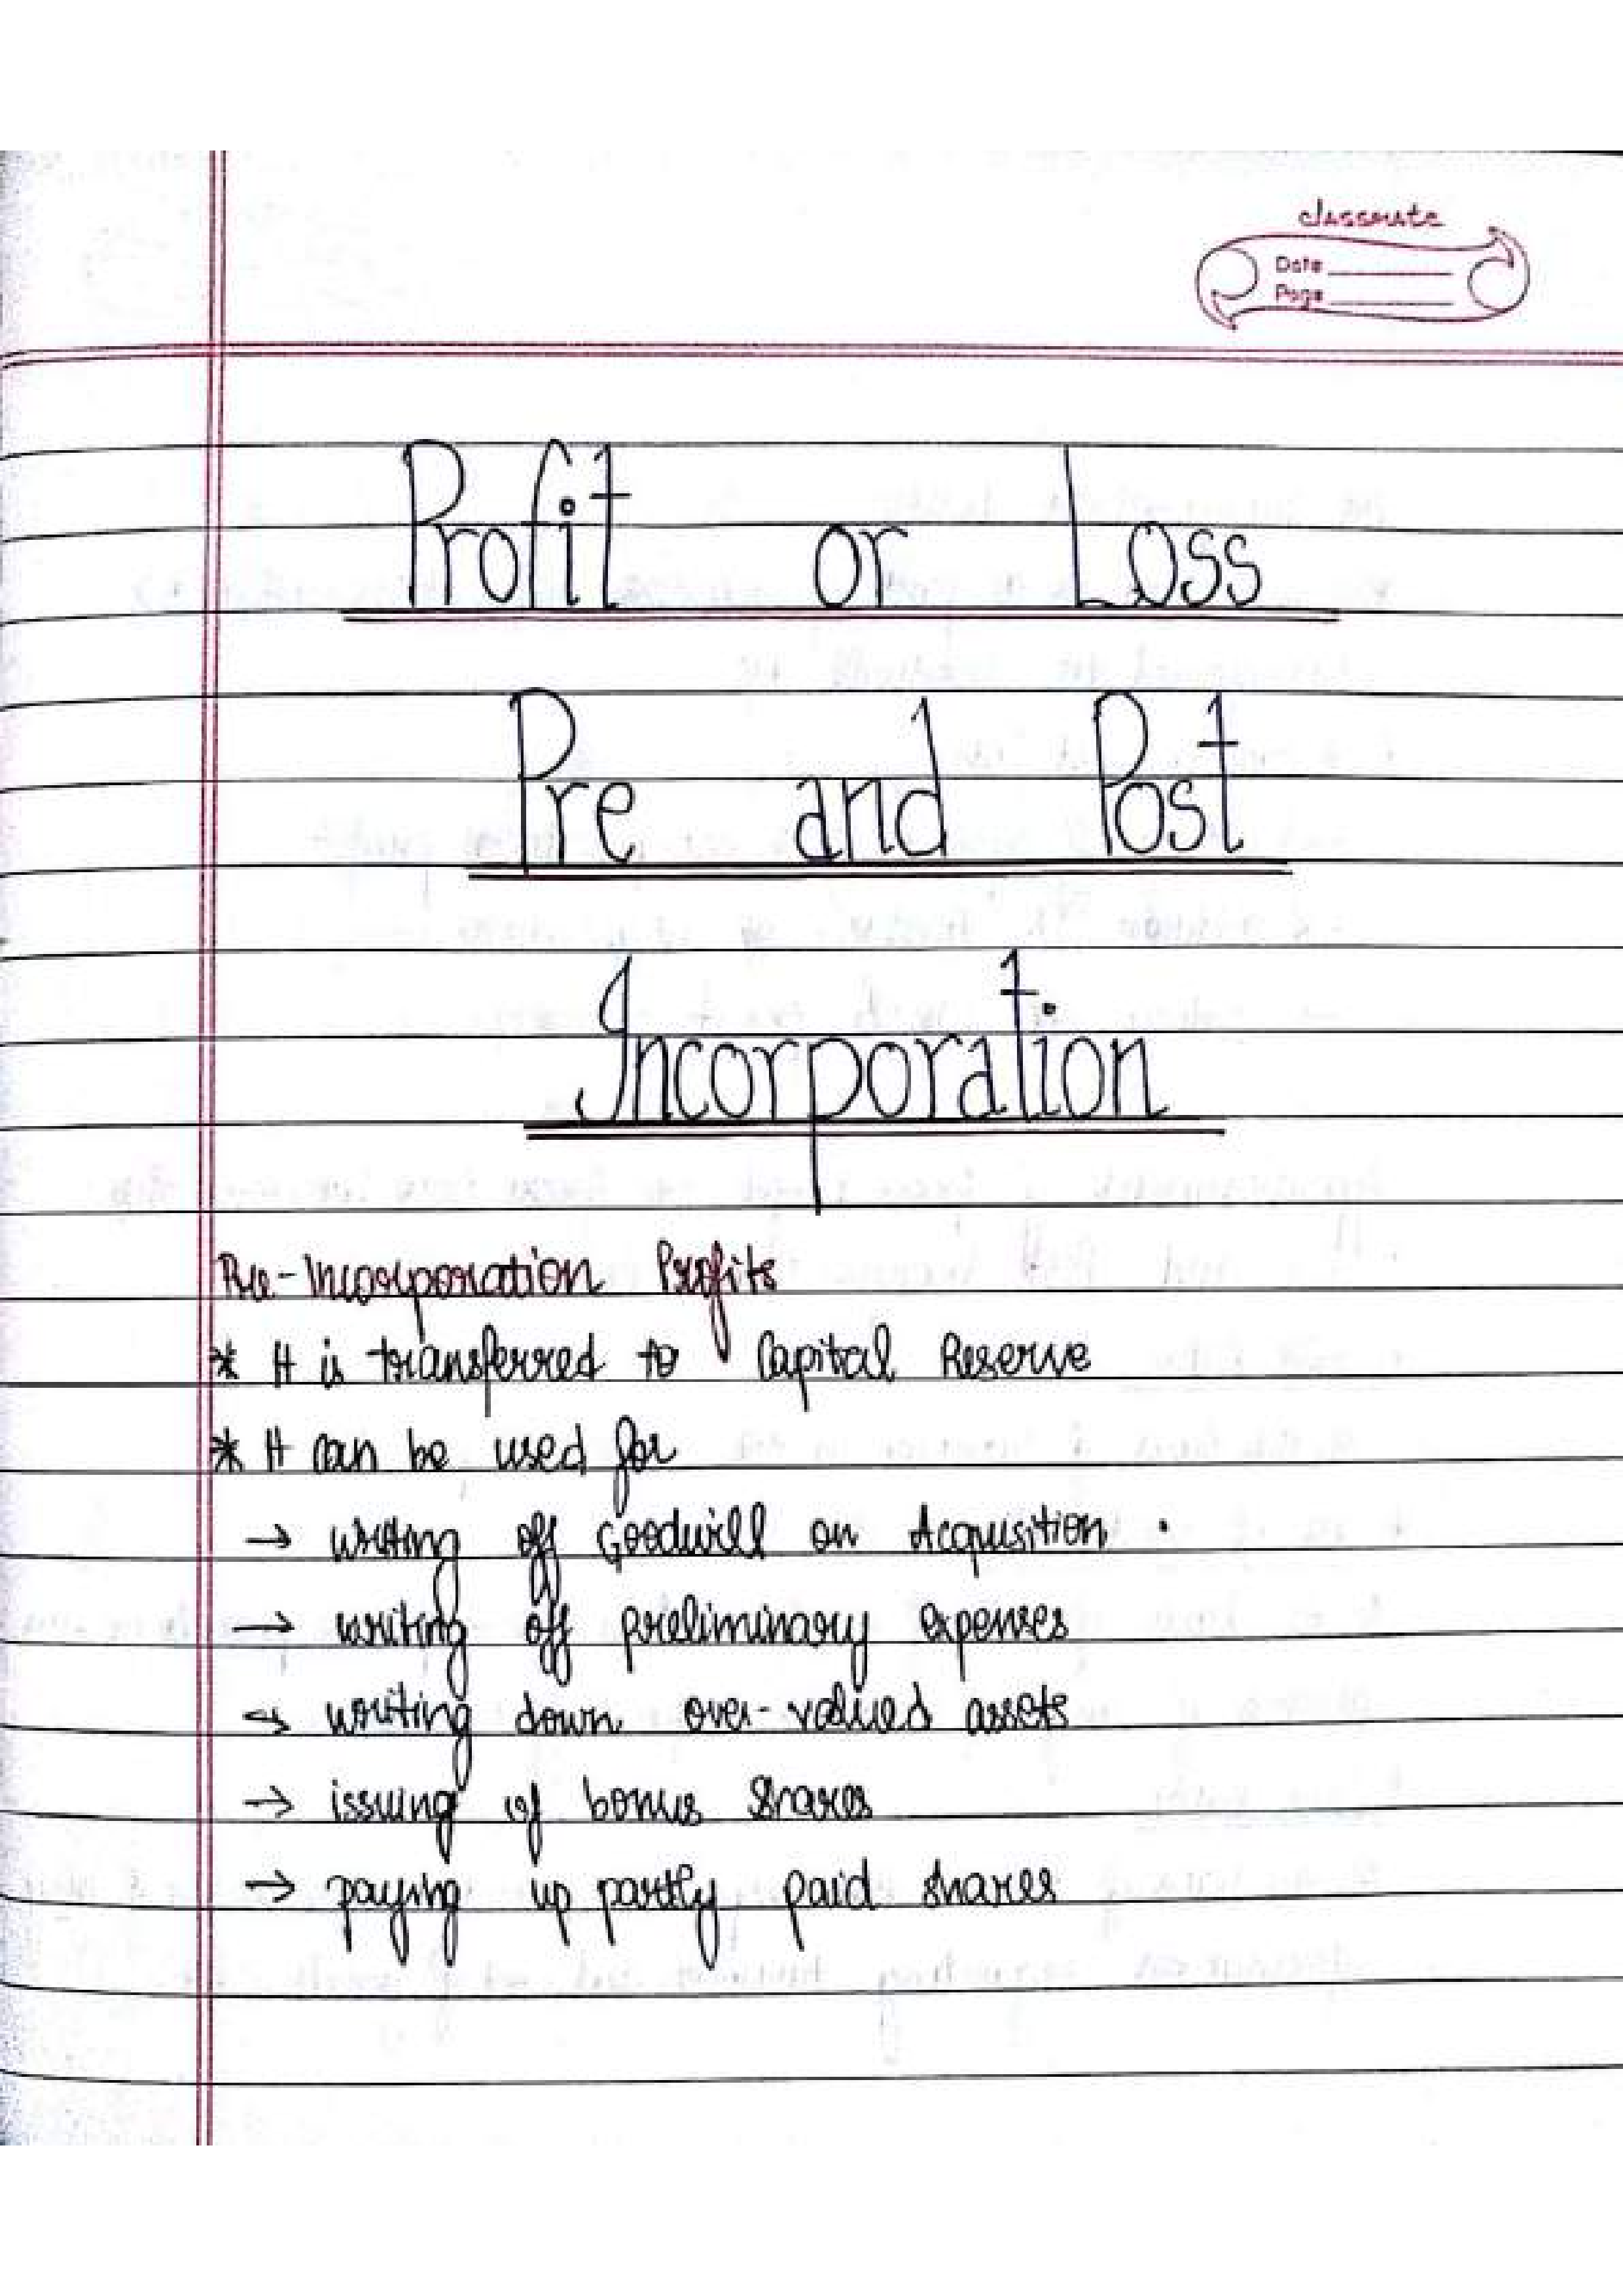 classmate
Date
Page
Profit or Loss
Pre and Post
Incorporation
Pre-Incorporation Profits
* It is transferred to Capital Reserve
* It can be used for
→ writing off Goodwill on Acquisition .
→ writing off preliminary expenses
→ writing down over-valued assets
→ issuing of bonus shares
→ paying up partly paid shares